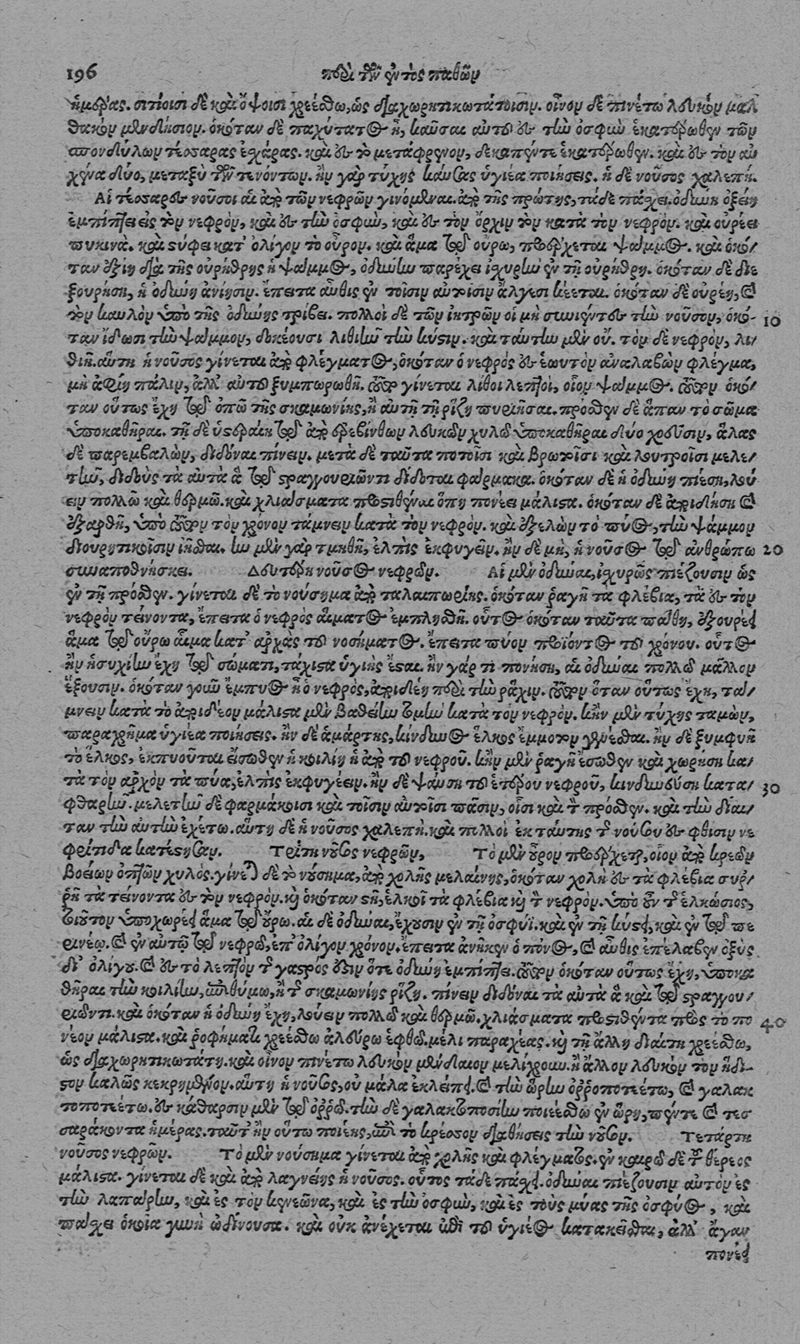 196 περὶ τῶν ἐντὸς παθῶν
ἡμέρας. σιτίοισι δὲ καὶ ὄψοισι χρεέσθω, ὡς διαχωρητικωτάτοισιν. οἶνον δὲ πινέτω λευκὸν μαλ
θακὸν μενδήσιον. ὁκόταν δὲ παχύτατος ᾖ, καῦσαι αὐτοῦ ἐς τὴν ὀσφὺν ἑκατέρωθεν τῶν
σπονδύλων τέσσαρας ἐσχάρας. καὶ ἐς τὸ μετάφρενον, δεκαπέντε ἑκατέρωθεν. καὶ ἐς τὸν αὐ
χένα δύο, μεταξὺ τῶν τενόντων. ἢν γὰρ τύχῃς καύσας ὑγιέα ποιήσεις. ἡ δὲ νοῦσος χαλεπή.
Αἱ τέσσαρες νοῦσοι αἱ ἀπὸ τῶν νεφρῶν γινόμεναι. ἀπὸ τῆς πρώτης, τάδε πάσχει. ὀδύνη ὀξείη
ἐμπίπτει εἰς τὸν νεφρὸν, καὶ ἐς τὴν ὀσφὺν, καὶ ἐς τὸν ὄρχιν τὸν κατὰ τὸν νεφρόν. καὶ οὐρέει
πυκινά. καὶ στύφει κατ' ὀλίγον τὸ οὖρον. καὶ ἅμα τῷ οὔρῳ, προέρχεται ψάμμος. καὶ ὁκό-
ταν ἐξίῃ διὰ τῆς οὐρήθρης ἡ ψάμμος, ὀδύνην παρέχει ἰσχυρὴν ἐν τῇ οὐρήθρῃ. ὁκόταν δὲ διε
ξουρήσῃ, ἡ ὀδύνη ἀνίησιν. ἔπειτα αὖθις ἐν τοῖσιν αὐτοῖσιν ἄλγεσι κέεται. ὁκόταν δὲ οὐρέῃ, καὶ
τὸν καυλὸν ὑπὸ τῆς ὀδύνης τρίβει. πολλοὶ δὲ τῶν ἰητρῶν οἱ μὴ συνιέντες τὴν νοῦσον, ὁκό- 10
ταν ἴδωσι τὴν ψάμμον, δοκέουσι λιθιῆν τὴν κύστιν. καὶ ταύτην μὲν οὔ. τὸν δὲ νεφρὸν, λι-
θιῇ. αὕτη ἡ νοῦσος γίνεται ἀπὸ φλέγματος, ὁκόταν ὁ νεφρὸς ἐς ἑωυτὸν ἀναλαβὼν φλέγμα,
μὴ ἀφίῃ πάλιν, ἀλλ' αὐτοῦ ξυμπωρωθῇ. τοῦτο γίνεται λίθοι λεπτοὶ, οἷον ψάμμος. τοῦτον ὁκό-
ταν οὕτως ἔχῃ τῷ ὀπῷ τῆς σκαμωνίης, ἢ αὐτῇ τῇ ῥίζῃ πυριῆσαι. πρόσθεν δὲ ἅπαν τὸ σῶμα
ὑποκαθῆραι. τῇ δὲ ὑστεραίῃ τῷ ἀπὸ ἐρεβίνθων λευκῶν χυλῷ ὑποκαθῆραι δύο χοεῦσιν, ἅλας
δὲ παρεμβαλὼν, διδόναι πίνειν. μετὰ δὲ ταῦτα ποτοῖσι καὶ βρωτοῖσι καὶ λουτροῖσι μελε-
τῆν, διδοὺς τὰ αὐτὰ ἃ τῷ στραγγουριῶντι δίδοται φάρμακα. ὁκόταν δὲ ἡ ὀδύνη πιέσῃ, λού
ειν πολλῷ καὶ θερμῷ. καὶ χλιάσματα προστιθέναι ὅπη πονέει μάλιστα. ὁκόταν δὲ ἀποιδήσῃ καὶ
ἐξαρθῇ, ὑπὸ τοῦτον τὸν χρόνον τάμνειν κατὰ τὸν νεφρόν. καὶ ἐξελὼν τὸ πῦος, τὴν ψάμμον
διουρητικοῖσιν ἰῆσθαι. ἢν μὲν γὰρ τμηθῇ, ἐλπὶς ἐκφυγεῖν. ἢν δὲ μὴ, ἡ νοῦσος τῷ ἀνθρώπῳ 20
συναποθνήσκει. Δευτέρη νοῦσος νεφρῶν. Αἱ μὲν ὀδύναι, ἰσχυρῶς πιέζουσιν ὡς
ἐν τῇ πρόσθεν. γίνεται δὲ τὸ νούσημα ἀπὸ ταλαιπωρίης. ὁκόταν ῥαγῇ τὰ φλέβια, τὰ ἐς τὸν
νεφρὸν τείνοντα, ἔπειτα ὁ νεφρὸς αἵματος ἐμπλησθῇ. οὗτος ὁκόταν ταῦτα πάθῃ, ἐξουρέει
ἅμα τῷ οὔρῳ αἷμα κατ' ἀρχὰς τοῦ νοσήματος. ἔπειτα πύον προϊόντος τοῦ χρόνου. οὗτος
ἢν ἡσυχίην ἔχῃ τῷ σώματι, τάχιστα ὑγιὴς ἔσται. ἢν γάρ τι πονήσῃ, αἱ ὀδύναι πολλῷ μᾶλλον
ἕξουσιν. ὁκόταν γοῦν ἔμπυος ᾖ ὁ νεφρὸς, ἀποιδέῃ περὶ τὴν ῥάχιν. τοῦτον ὅταν οὕτως ἔχῃ, τά-
μνειν κατὰ τὸ ἀποιδέον μάλιστα μὲν βαθείην τομὴν κατὰ τὸν νεφρόν. κἢν μὲν τύχῃς ταμὼν,
παραχρῆμα ὑγιέα ποιήσεις. ἢν δὲ ἁμάρτῃς, κίνδυνος ἕλκος ἔμμοτον γενέσθαι. ἢν δὲ ξυμφυῇ
τὸ ἕλκος, ἐκπυοῦται εἴσωθεν ἡ κοιλίη ἡ ἀπὸ τοῦ νεφροῦ. κἢν μὲν ῥαγῇ ἔσωθεν καὶ χωρήσῃ κα-
τὰ τὸν ἀρχὸν τὰ πύα, ἐλπὶς ἐκφυγέειν. ἢν δὲ ψαύσῃ τοῦ ἑτέρου νεφροῦ, κινδυνεύσῃ κατα- 30
φθαρῆν. μελετῆν δὲ φαρμάκοισι καὶ τοῖσιν αὐτοῖσι πᾶσιν, οἷσι καὶ τὸν πρόσθεν. καὶ τὴν δίαι-
ταν τὴν αὐτὴν ἐχέτω. αὕτη δὲ ἡ νοῦσος χαλεπή. καὶ πολλοὶ ἐκ ταύτης τῆς νούσου ἐς φθίσιν νε
φρίτιδα κατέστησαν. Τρίτη νοῦσος νεφρῶν, Τὸ μὲν οὖρον προέρχεται, οἷον ἀπὸ κρεῶν
βοείων ὀπτῶν χυλός. γίνεται δὲ τὸ νούσημα, ἀπὸ χολῆς μελαίνης, ὁκόταν χολὴ ἐς τὰ φλέβια συῤ-
ῥῇ τὰ τείνοντα ἐς τὸν νεφρόν. καὶ ὁκόταν στῇ, ἑλκοῖ τὰ φλέβια καὶ τὸν νεφρόν. ὑπὸ οὖν τῆς ἑλκώσιος,
τοιοῦτον ὑποχωρέει ἅμα τῷ οὔρῳ. αἱ δὲ ὀδύναι, ἔχουσιν ἐν τῇ ὀσφύϊ. καὶ ἐν τῇ κύστει, καὶ ἐν τῷ πε
ρινέῳ. καὶ ἐν αὐτῷ τῷ νεφρῷ, ἐπ' ὀλίγον χρόνον. ἔπειτα ἀνῆκεν ὁ πόνος, καὶ αὖθις ἐπέλαβεν ὀξὺς
δι' ὀλίγου. καὶ ἐς τὸ λεπτὸν τῆς γαστρός ἐστιν ὅτε ὀδύνη ἐμπίπτει. τοῦτον ὁκόταν οὕτως ἔχῃ, ὑποκα
θῆραι τὴν κοιλίην, ἐπιθύμῳ, ἢ τῆς σκαμωνίης ῥίζῃ. πίνειν διδόναι τὰ αὐτὰ ἃ καὶ τῷ στραγγου-
ριῶντι. καὶ ὁκόταν ἡ ὀδύνη ἔχῃ, λούειν πολλῷ καὶ θερμῷ. χλιάσματα προστιθέντα πρὸς τὸ πο 40
νέον μάλιστα. καὶ ῥοφήματι χρεέσθω ἀλεύρῳ ἑφθῷ. μέλι παραχέας. καὶ τῇ ἄλλῃ διαίτῃ χρεέσθω,
ὡς διαχωρητικωτάτῃ. καὶ οἶνον πινέτω λευκὸν μενδαῖον μελίχρουν. ἢ ἄλλον λευκὸν τὸν ἥδι-
στον καλῶς κεκρημένον. αὕτη ἡ νοῦσος, οὐ μάλα ἐκλείπει. καὶ τὴν ὥρην ὀῤῥοποτεέτω, καὶ γαλακ
τοποτεέτω. ἐς κάθαρσιν μὲν τῷ ὀῤῥῷ. τὴν δὲ γαλακτοποσίην ποιεέσθω ἐν ὥρῃ, πέντε καὶ τεσ
σαράκοντα ἡμέρας. ταῦτ' ἢν οὕτω ποιῇς, ἐπὶ τὸ κρέσσον διαθήσεις τὴν νοῦσον. Τετάρτη
νοῦσος νεφρῶν. Τὸ μὲν νούσημα γίνεται ἀπὸ χολῆς καὶ φλέγματος. ἐν καιρῷ δὲ τοῦ θέρεος
μάλιστα. γίνεται δὲ καὶ ἀπὸ λαγνείης ἡ νοῦσος. οὗτος τάδε πάσχει. ὀδύναι πιέζουσιν αὐτὸν ἐς
τὴν λαπάρην, καὶ ἐς τὸν κενεῶνα, καὶ ἐς τὴν ὀσφὺν, καὶ ἐς τοὺς μύας τῆς ὀσφύος, καὶ
πάσχει ὁκοῖα γυνὴ ὠδίνουσα. καὶ οὐκ ἀνέχεται ἐπὶ τοῦ ὑγιέος κατακεῖσθαι, ἀλλ' ἄγαν
πονέει